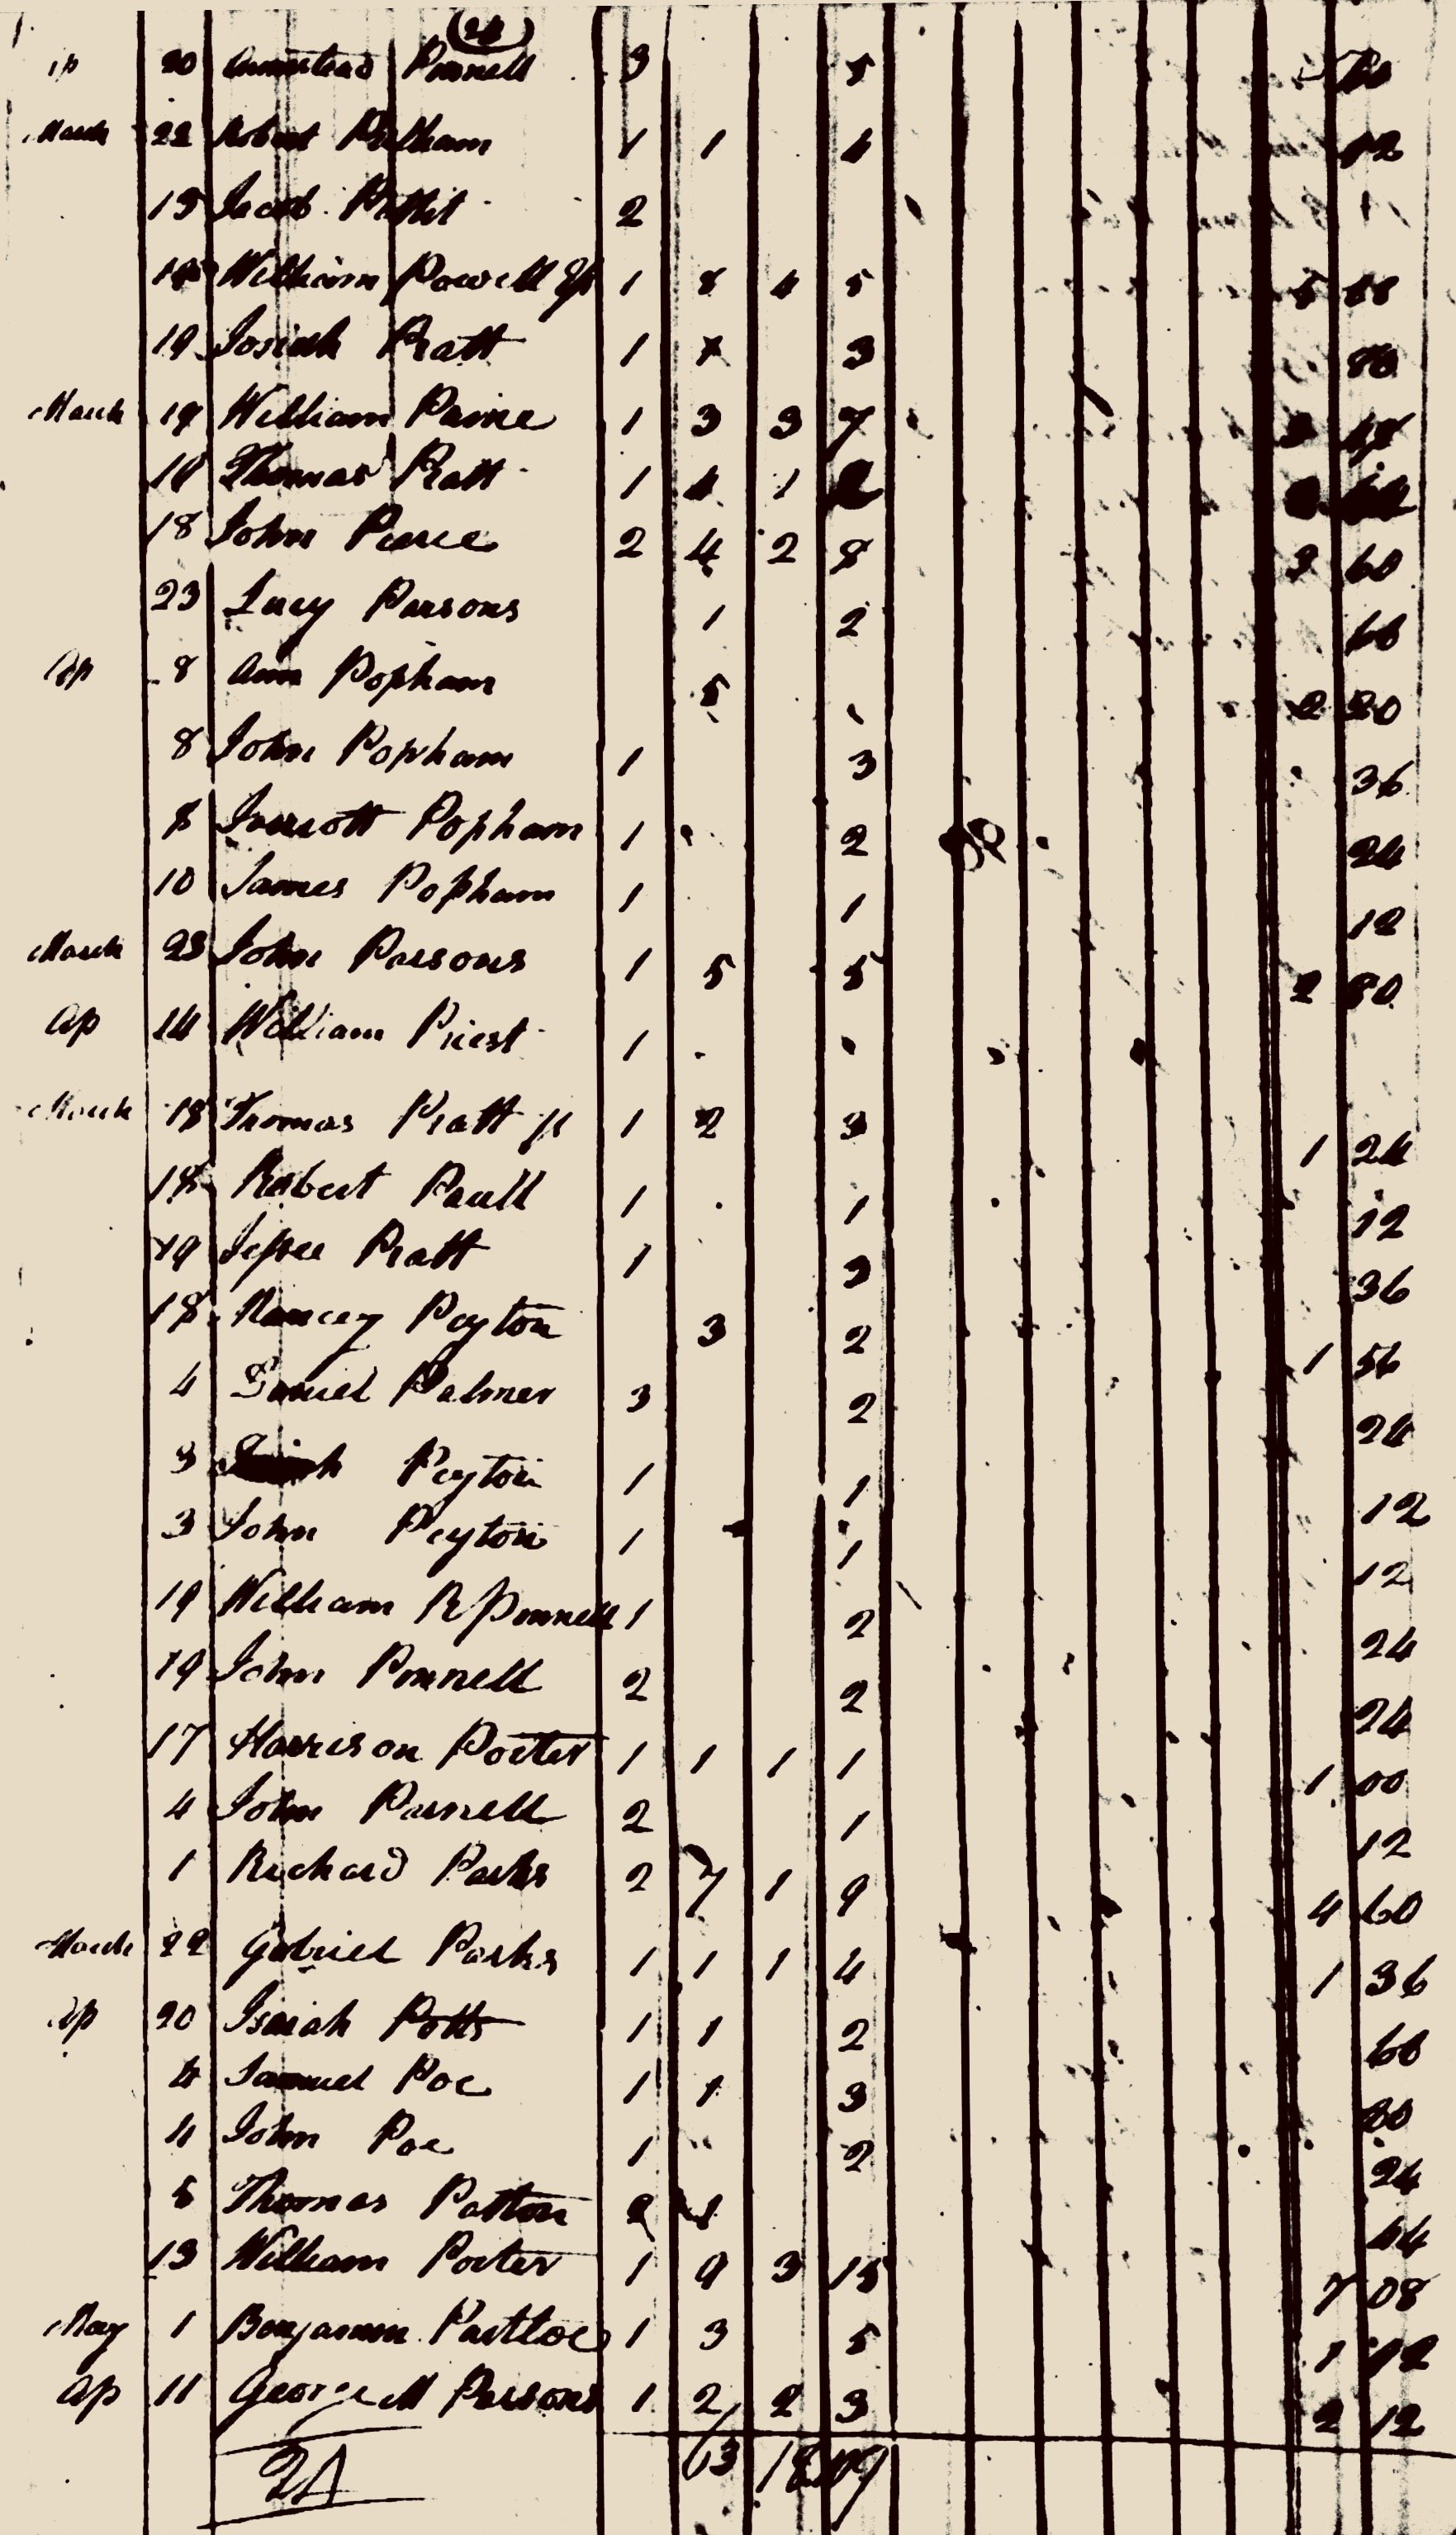 24
Ap 20 Armistead Pinnell 3 5 60
March 22 Robert Pelham 1 1 4
15 Jacob Pettit 2
William Powell 1 8 4 5 5
19 Josiah Pratt 1 3
March 19 William Paine 1 3 3 7 3 48
18 Thomas Pratt 1 4 1
18 John Pierce 2 4 2 8 3 60
23 Lucy Parsons 1 2 68
Ap 8 Ann Popham 5 2 20
8 John Popham 1 3 36
8 Popham 1 2 24
10 James Popham 1 1 12
March 23 John Parsons 1 5 5 2 80
Ap 14 William Priest 1
March 18 Thomas Pratt jr 1 2 3 1 24
18 Robert Paull 1 1 12
19 Jessee Pratt 1 3 36
18 Nancey Peyton 3 2 1 56
4 Palmer 3 2 24
3 Peyton 1 1 12
3 John Peyton 1 1 12
19 William R Pinnell 1 2 24
19 John Pinnell 2 2 24
17 Harrison Porter 1 1 1 1 1 00
4 John Parnell 2 1 12
1 Richard Parks 2 7 1 9 4 60
March 22 Gabriel Parks 1 1 1 4 1 36
Ap 20 Isaiah Potts 1 1 2 68
4 Samuel Poe 1 1 3 80
4 John Poe 1 2 24
5 Thomas Patton 2 1 44
13 William Porter 1 9 3 15 7 08
May 1 Benjamin Partloe 1 3 5 1 92
Ap 11 George M Parsons 1 2 2 3 2 12
24 63 18 109